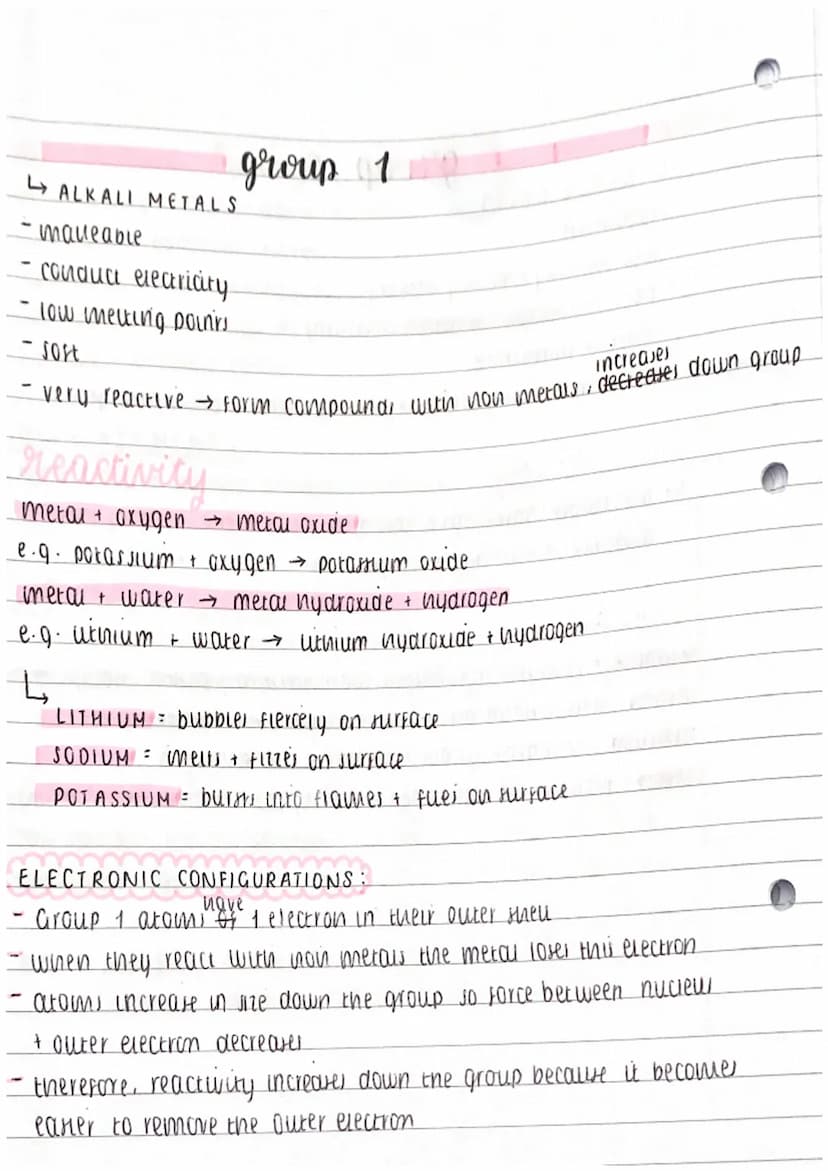 group 1
↳ ALKALI METALS
- malleable
- conduct electricity
- low melting points
- soft
increases
- very reactive → form compounds with non metals, decreases down group
reactivity
metal + oxygen → metal oxide
e.g. potassium + oxygen → potassium oxide
metal + water → metal hydroxide + hydrogen
e.g. lithium + water → lithium hydroxide + hydrogen
↳
LITHIUM = bubbles fiercely on surface
SODIUM = melts + fizzes on surface
POTASSIUM = bursts into flames + flies on surface
ELECTRONIC CONFIGURATIONS:
have
- Group 1 atoms 1 electron in their outer shell
- when they react with non metals the metal loses this electron
- atoms increase in size down the group so force between nucleus
+ outer electron decreases
- therefore, reactivity increases down the group because it becomes
easier to remove the outer electron